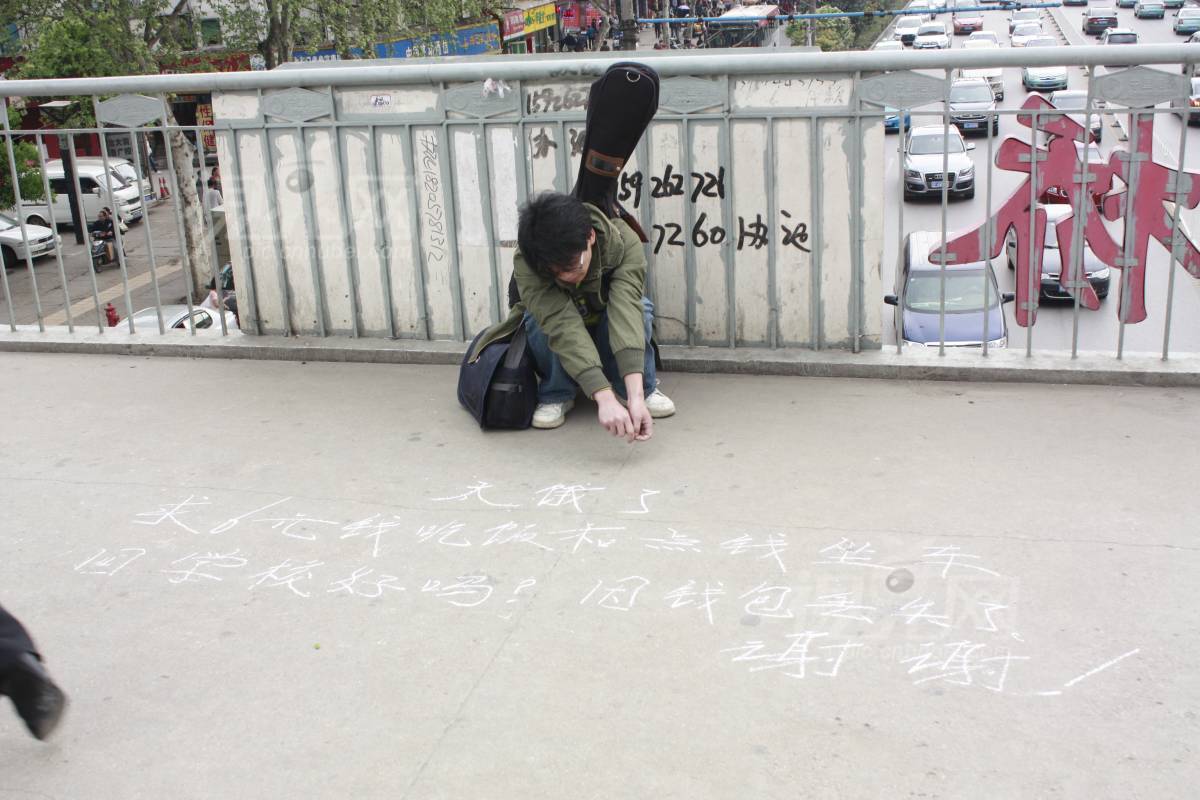 159262
159 262 721
7260
太饿了
求6元钱吃饭和点钱坐车
回学校好吗?因钱包丢失了。
谢谢!